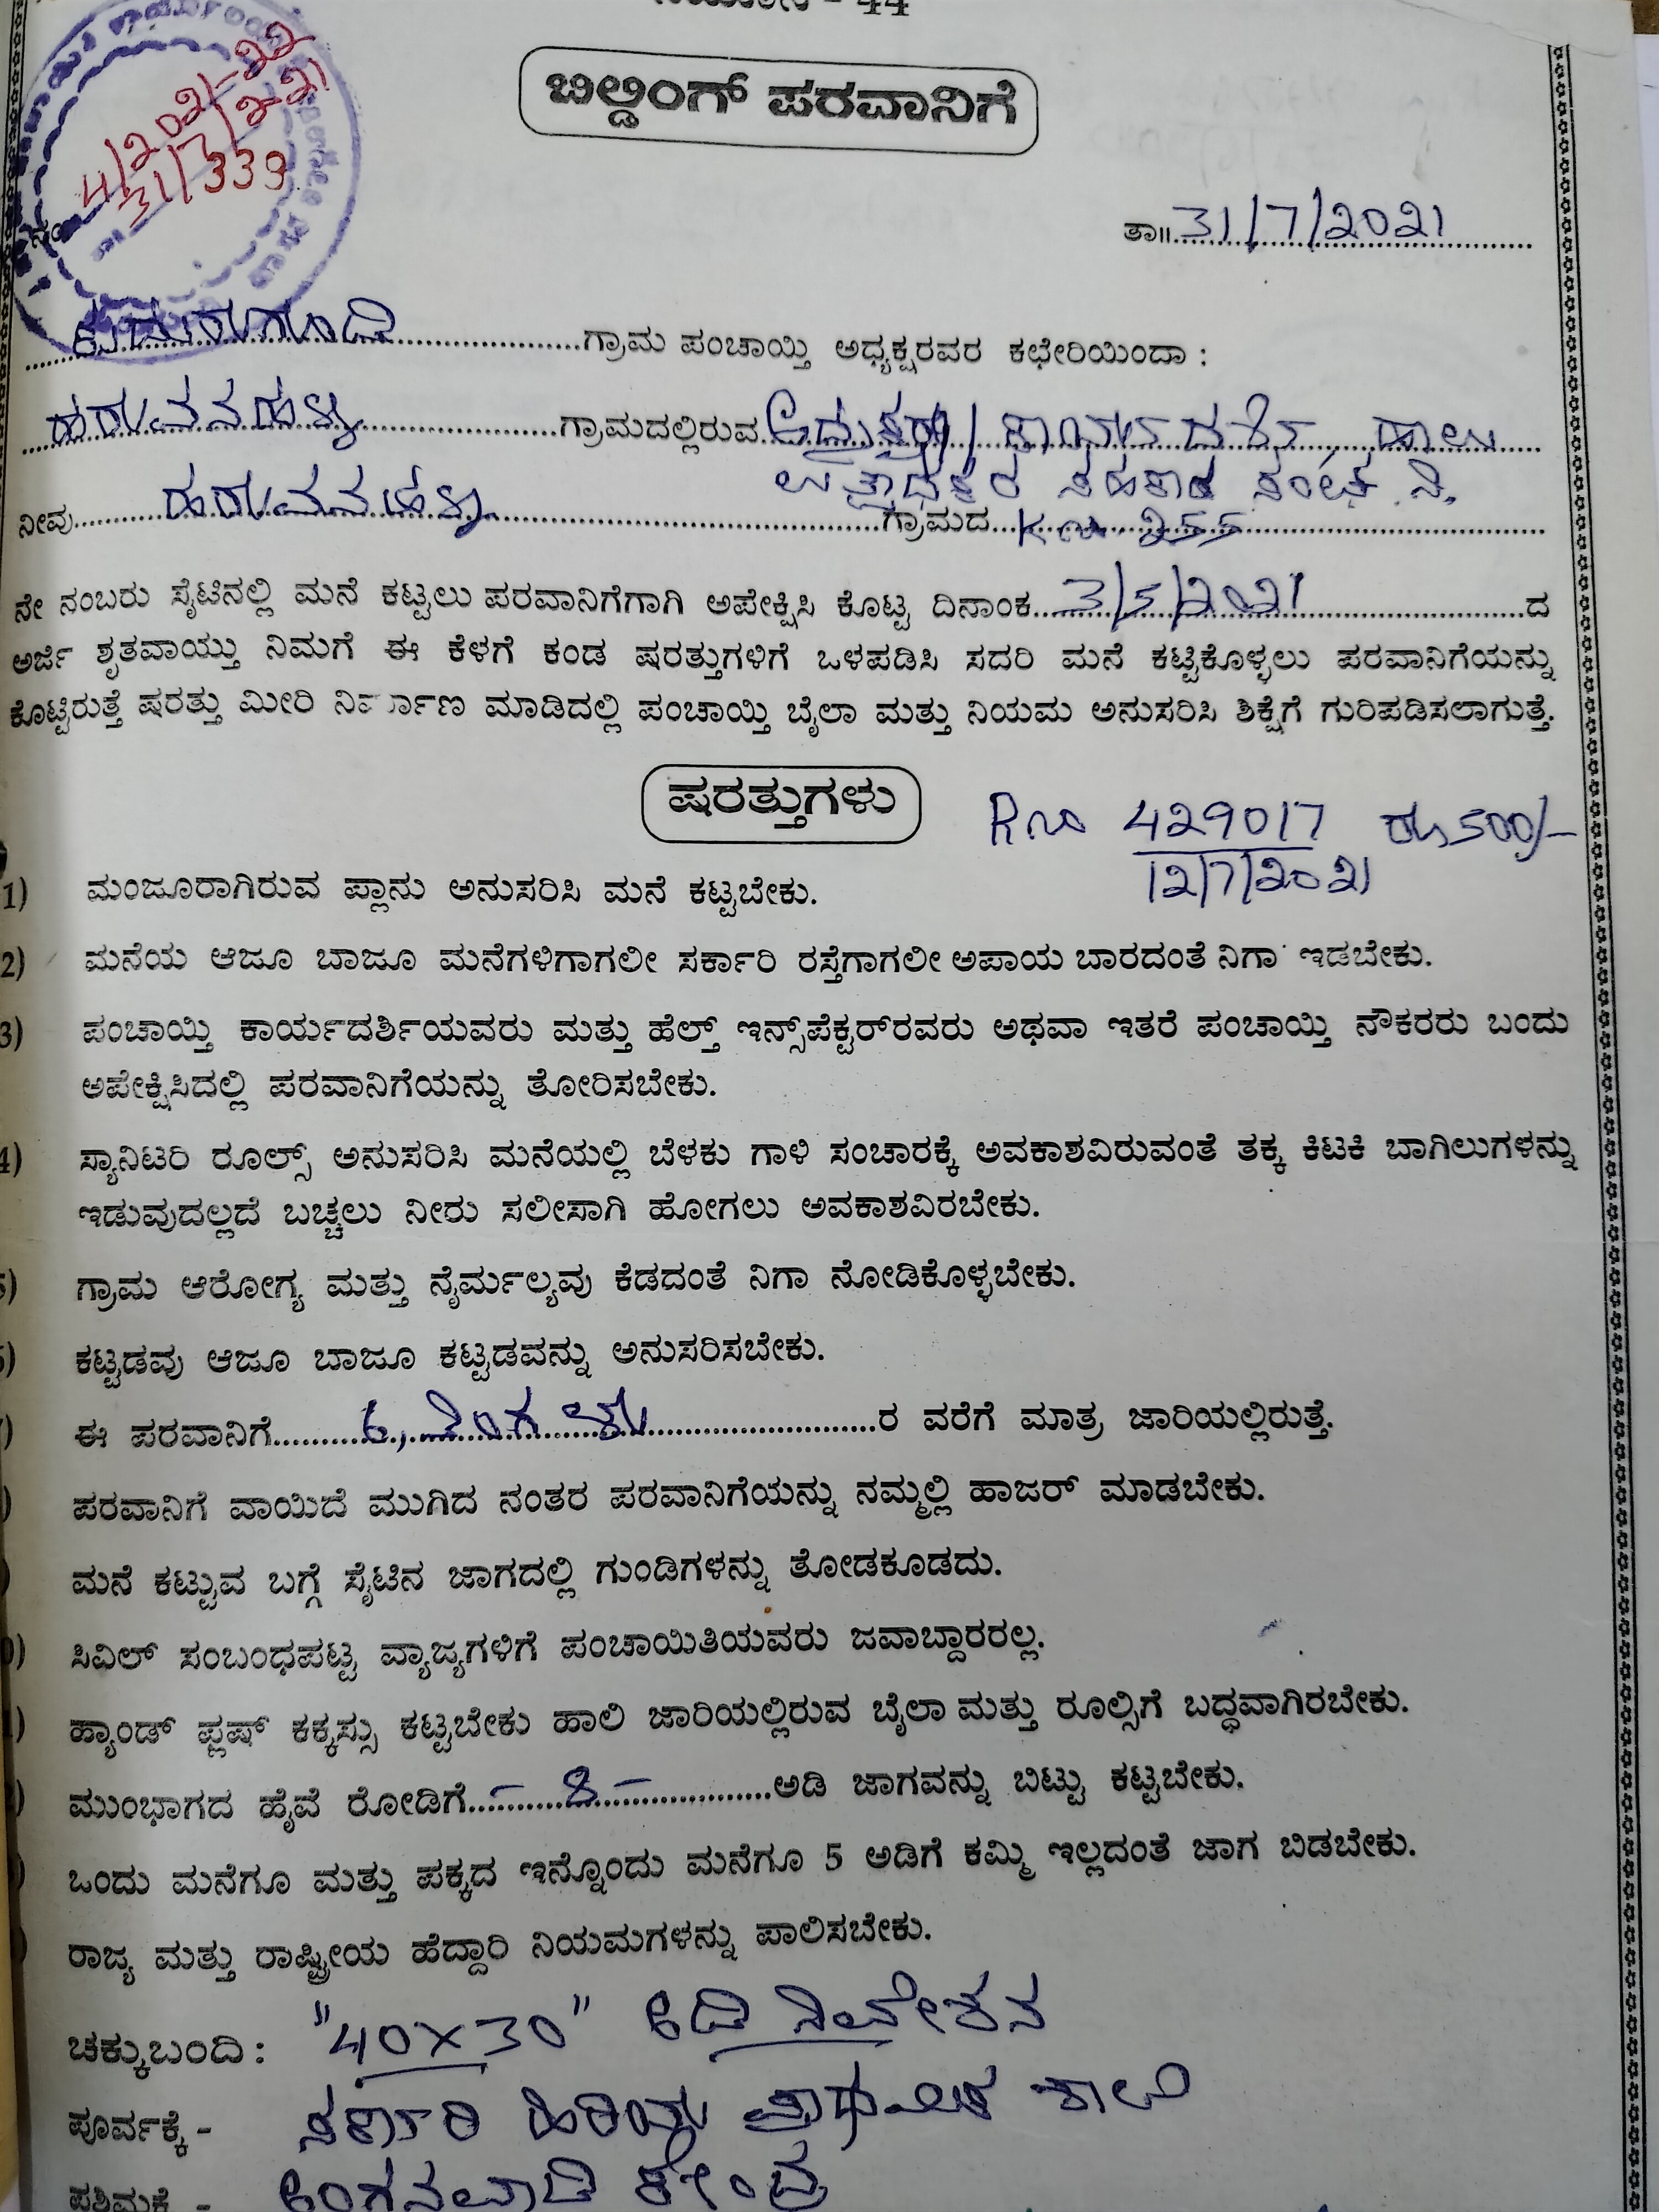 - 44
ಬಿಲ್ಡಿಂಗ್ ಪರವಾನಿಗೆ
4/2021-22
31/7/221
339
ನಂ
ತಾ॥ 31/7/2021
ಗ್ರಾಮ ಪಂಚಾಯ್ತಿ ಅಧ್ಯಕ್ಷರವರ ಕಛೇರಿಯಿಂದಾ :
ಗ್ರಾಮದಲ್ಲಿರುವ ಅಧ್ಯಕ್ಷರು/ ಕಾರ್ಯದರ್ಶಿ, ಹಾಲು
ಉತ್ಪಾಧಕರ ಸಹಕಾರ ಸಂಘ ನಿ,
ನೀವು ಗ್ರಾಮದ 255
ನೇ ನಂಬರು ಸೈಟಿನಲ್ಲಿ ಮನೆ ಕಟ್ಟಲು ಪರವಾನಿಗೆಗಾಗಿ ಅಪೇಕ್ಷಿಸಿ ಕೊಟ್ಟ ದಿನಾಂಕ 3/5/2021 ದ
ಅರ್ಜಿ ಶೃತವಾಯ್ತು ನಿಮಗೆ ಈ ಕೆಳಗೆ ಕಂಡ ಷರತ್ತುಗಳಿಗೆ ಒಳಪಡಿಸಿ ಸದರಿ ಮನೆ ಕಟ್ಟಿಕೊಳ್ಳಲು ಪರವಾನಿಗೆಯನ್ನು
ಕೊಟ್ಟಿರುತ್ತೆ ಷರತ್ತು ಮೀರಿ ನಿರ್ಮಾಣ ಮಾಡಿದಲ್ಲಿ ಪಂಚಾಯ್ತಿ ಬೈಲಾ ಮತ್ತು ನಿಯಮ ಅನುಸರಿಸಿ ಶಿಕ್ಷೆಗೆ ಗುರಿಪಡಿಸಲಾಗುತ್ತೆ.
ಷರತ್ತುಗಳು
R no 429017 ರೂ 500/-
12/7/2021
1) ಮಂಜೂರಾಗಿರುವ ಪ್ಲಾನು ಅನುಸರಿಸಿ ಮನೆ ಕಟ್ಟಬೇಕು.
2) ಮನೆಯ ಆಜೂ ಬಾಜೂ ಮನೆಗಳಿಗಾಗಲೀ ಸರ್ಕಾರಿ ರಸ್ತೆಗಾಗಲೀ ಅಪಾಯ ಬಾರದಂತೆ ನಿಗಾ ಇಡಬೇಕು.
3) ಪಂಚಾಯ್ತಿ ಕಾರ್ಯದರ್ಶಿಯವರು ಮತ್ತು ಹೆಲ್ತ್ ಇನ್ಸ್‌ಪೆಕ್ಟರ್‌ರವರು ಅಥವಾ ಇತರೆ ಪಂಚಾಯ್ತಿ ನೌಕರರು ಬಂದು
ಅಪೇಕ್ಷಿಸಿದಲ್ಲಿ ಪರವಾನಿಗೆಯನ್ನು ತೋರಿಸಬೇಕು.
4) ಸ್ಯಾನಿಟರಿ ರೂಲ್ಸ್ ಅನುಸರಿಸಿ ಮನೆಯಲ್ಲಿ ಬೆಳಕು ಗಾಳಿ ಸಂಚಾರಕ್ಕೆ ಅವಕಾಶವಿರುವಂತೆ ತಕ್ಕ ಕಿಟಕಿ ಬಾಗಿಲುಗಳನ್ನು
ಇಡುವುದಲ್ಲದೆ ಬಚ್ಚಲು ನೀರು ಸಲೀಸಾಗಿ ಹೋಗಲು ಅವಕಾಶವಿರಬೇಕು.
ಗ್ರಾಮ ಆರೋಗ್ಯ ಮತ್ತು ನೈರ್ಮಲ್ಯವು ಕೆಡದಂತೆ ನಿಗಾ ನೋಡಿಕೊಳ್ಳಬೇಕು.
ಕಟ್ಟಡವು ಆಜೂ ಬಾಜೂ ಕಟ್ಟಡವನ್ನು ಅನುಸರಿಸಬೇಕು.
ಈ ಪರವಾನಿಗೆ 6, ತಿಂಗಳು ರ ವರೆಗೆ ಮಾತ್ರ ಜಾರಿಯಲ್ಲಿರುತ್ತೆ.
ಪರವಾನಿಗೆ ವಾಯಿದೆ ಮುಗಿದ ನಂತರ ಪರವಾನಿಗೆಯನ್ನು ನಮ್ಮಲ್ಲಿ ಹಾಜರ್ ಮಾಡಬೇಕು.
ಮನೆ ಕಟ್ಟುವ ಬಗ್ಗೆ ಸೈಟಿನ ಜಾಗದಲ್ಲಿ ಗುಂಡಿಗಳನ್ನು ತೋಡಕೂಡದು.
ಸಿವಿಲ್ ಸಂಬಂಧಪಟ್ಟ ವ್ಯಾಜ್ಯಗಳಿಗೆ ಪಂಚಾಯಿತಿಯವರು ಜವಾಬ್ದಾರರಲ್ಲ.
ಹ್ಯಾಂಡ್ ಫ್ಲಷ್ ಕಕ್ಕಸ್ಸು ಕಟ್ಟಬೇಕು ಹಾಲಿ ಜಾರಿಯಲ್ಲಿರುವ ಬೈಲಾ ಮತ್ತು ರೂಲ್ಸಿಗೆ ಬದ್ಧವಾಗಿರಬೇಕು.
ಮುಂಭಾಗದ ಹೈವೆ ರೋಡಿಗೆ - 8 - ಅಡಿ ಜಾಗವನ್ನು ಬಿಟ್ಟು ಕಟ್ಟಬೇಕು.
ಒಂದು ಮನೆಗೂ ಮತ್ತು ಪಕ್ಕದ ಇನ್ನೊಂದು ಮನೆಗೂ 5 ಅಡಿಗೆ ಕಮ್ಮಿ ಇಲ್ಲದಂತೆ ಜಾಗ ಬಿಡಬೇಕು.
ರಾಜ್ಯ ಮತ್ತು ರಾಷ್ಟ್ರೀಯ ಹೆದ್ದಾರಿ ನಿಯಮಗಳನ್ನು ಪಾಲಿಸಬೇಕು.
ಚಕ್ಕುಬಂದಿ : "40X30" ಅಡಿ ನಿವೇಶನ
ಪೂರ್ವಕ್ಕೆ - ಸರ್ಕಾರಿ ಹಿರಿಯ ಪ್ರಾಥಮಿಕ ಶಾಲೆ
ಪಶ್ಚಿಮಕ್ಕೆ - ಅಂಗನವಾಡಿ ಕೇಂದ್ರ